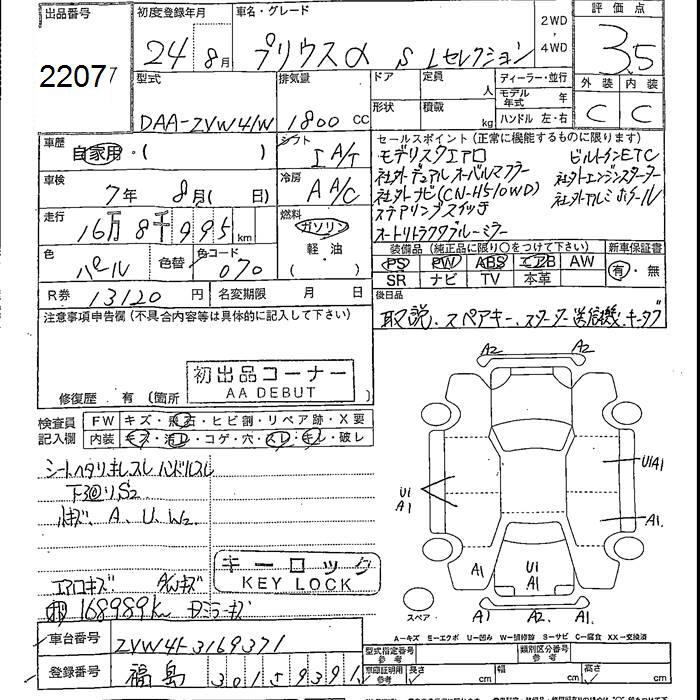 出品番号
22077
初度登録年月
24年 8月
車名・グレード
プリウスα S Lセレクション
2WD
・
4WD
評価点
3.5
外装 内装
C C
型式
DAA-ZVW41W
排気量
1800 CC
ドア
定員 人
形状
積載 kg
ディーラー・並行
モデル年式 年
ハンドル 左・右
車歴
自家用・( )
シフト
I A/T
車検
7年 8月( 日)
冷房
A A/C
走行
16万8千995km
燃料
ガソリン
軽・油
( ・ )
色
パール
色替
色コード
070
R券 13120円
名変期限 月 日
セールスポイント (正常に機能するものに限ります)
モデリスタエアロ ビルトインETC
社外デュアルオーバルマフラー 社外エンジンスターター
社外ナビ(CN-H510WD) 社外アルミホイール
ステアリングスイッチ
オートリトラクタブルミラー
装備品 (純正品に限り○をつけて下さい) 新車保証書
PS PW ABS エアB AW
有・無
SR ナビ TV 本革
後日品
取説、スペアキー、スターター送信機、キータグ
注意事項申告欄 (不具合内容等は具体的に記入して下さい)
初出品コーナー
AA DEBUT
修復歴 有 (箇所
検査員記入欄
FW キズ・飛石・ヒビ割・リペア跡・X要
内装 キズ・汚レ・コゲ・穴・スレ・キレ・破レ
シートヘタリ キレ スレ ハンドルスレ
下回りS2
小キズ、A、U、W2
キーロック
KEY LOCK
エアロキズ A/Wキズ
168989km ドアミラーキズ
車台番号 ZVW41-3169371
登録番号 福島 301 9391
A2
A2
U1A1
U1
A1
A1.
A1
U1
A1
A1 A2. A1.
スペア
A-キズ E-エクボ U-凹み W-補修跡 S-サビ C-腐食 XX-交換済
型式指定番号
参考
類別区分番号
参考
車庫証明用
参考
長さ cm 幅 cm 高さ cm